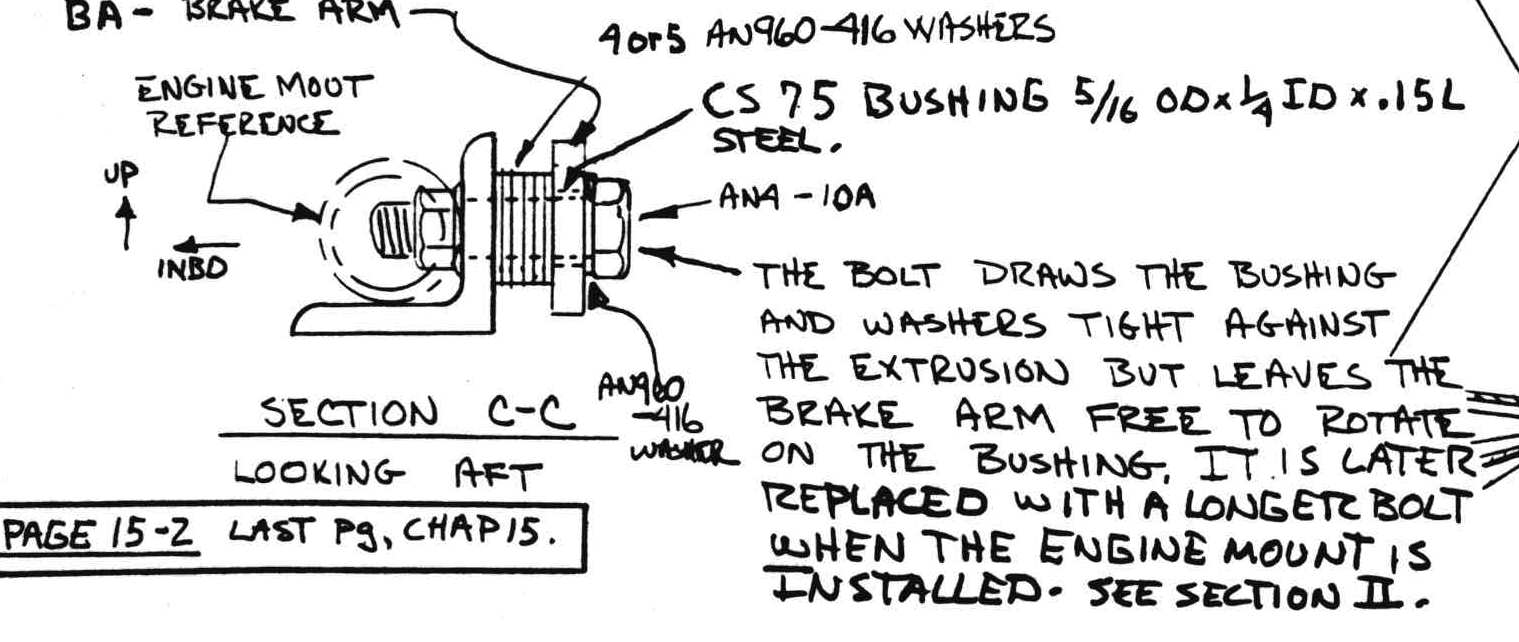 BA - BRAKE ARM
4 or 5 AN960-416 WASHERS
ENGINE MOUT
REFERENCE
CS 75 BUSHING 5/16 OD x 1/4 ID x .15L
STEEL.
UP
INBD
AN4 - 10A
THE BOLT DRAWS THE BUSHING
AND WASHERS TIGHT AGAINST
THE EXTRUSION BUT LEAVES THE
BRAKE ARM FREE TO ROTATE
ON THE BUSHING. IT IS LATER
REPLACED WITH A LONGER BOLT
WHEN THE ENGINE MOUNT IS
INSTALLED. SEE SECTION II.
AN960
-416
WASHER
SECTION C-C
LOOKING AFT
PAGE 15-2 LAST Pg, CHAP 15.